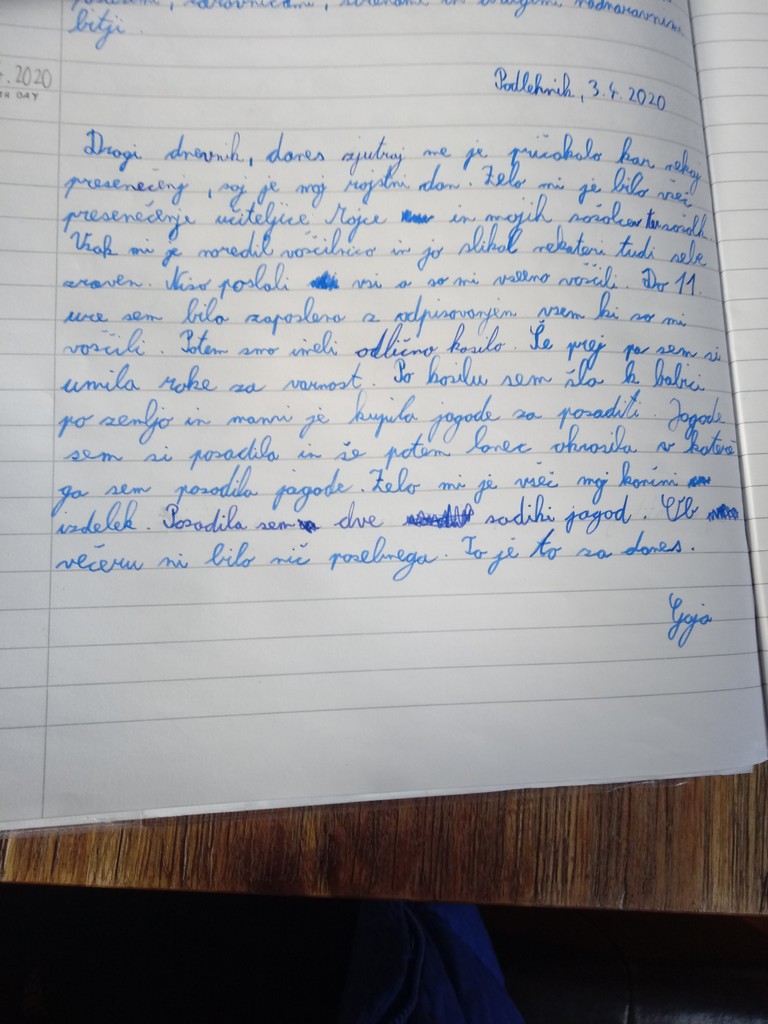 bitji.
.2020
Podlehnik, 3.4.2020
Dragi dnevnik, danes zjutraj me je pričakalo kar nekaj
presenečenj, saj je moj rojstni dan. Zelo mi je bilo všeč
presenečenje učiteljice Mojce in mojih sošolcev ter sošolk.
Vsak mi je naredil voščilnico in jo slikal nekateri tudi sebe
zraven. Niso poslali vsi a so mi vseeno voščili. Do 11.
ure sem bila zaposlena z odpisovanjem vsem ki so mi
voščili. Potem smo imeli odlično kosilo. Še prej pa sem si
umila roke za varnost. Po kosilu sem šla k babici
po zemljo in mami je kupila jagode za posaditi. Jagode
sem si posadila in še potem lonec okrasila v katere
ga sem posadila jagode. Zelo mi je všeč moj končni
izdelek. Posadila sem dve sadiki jagod.
večeru ni bilo nič posebnega. To je to za danes.
Gaja